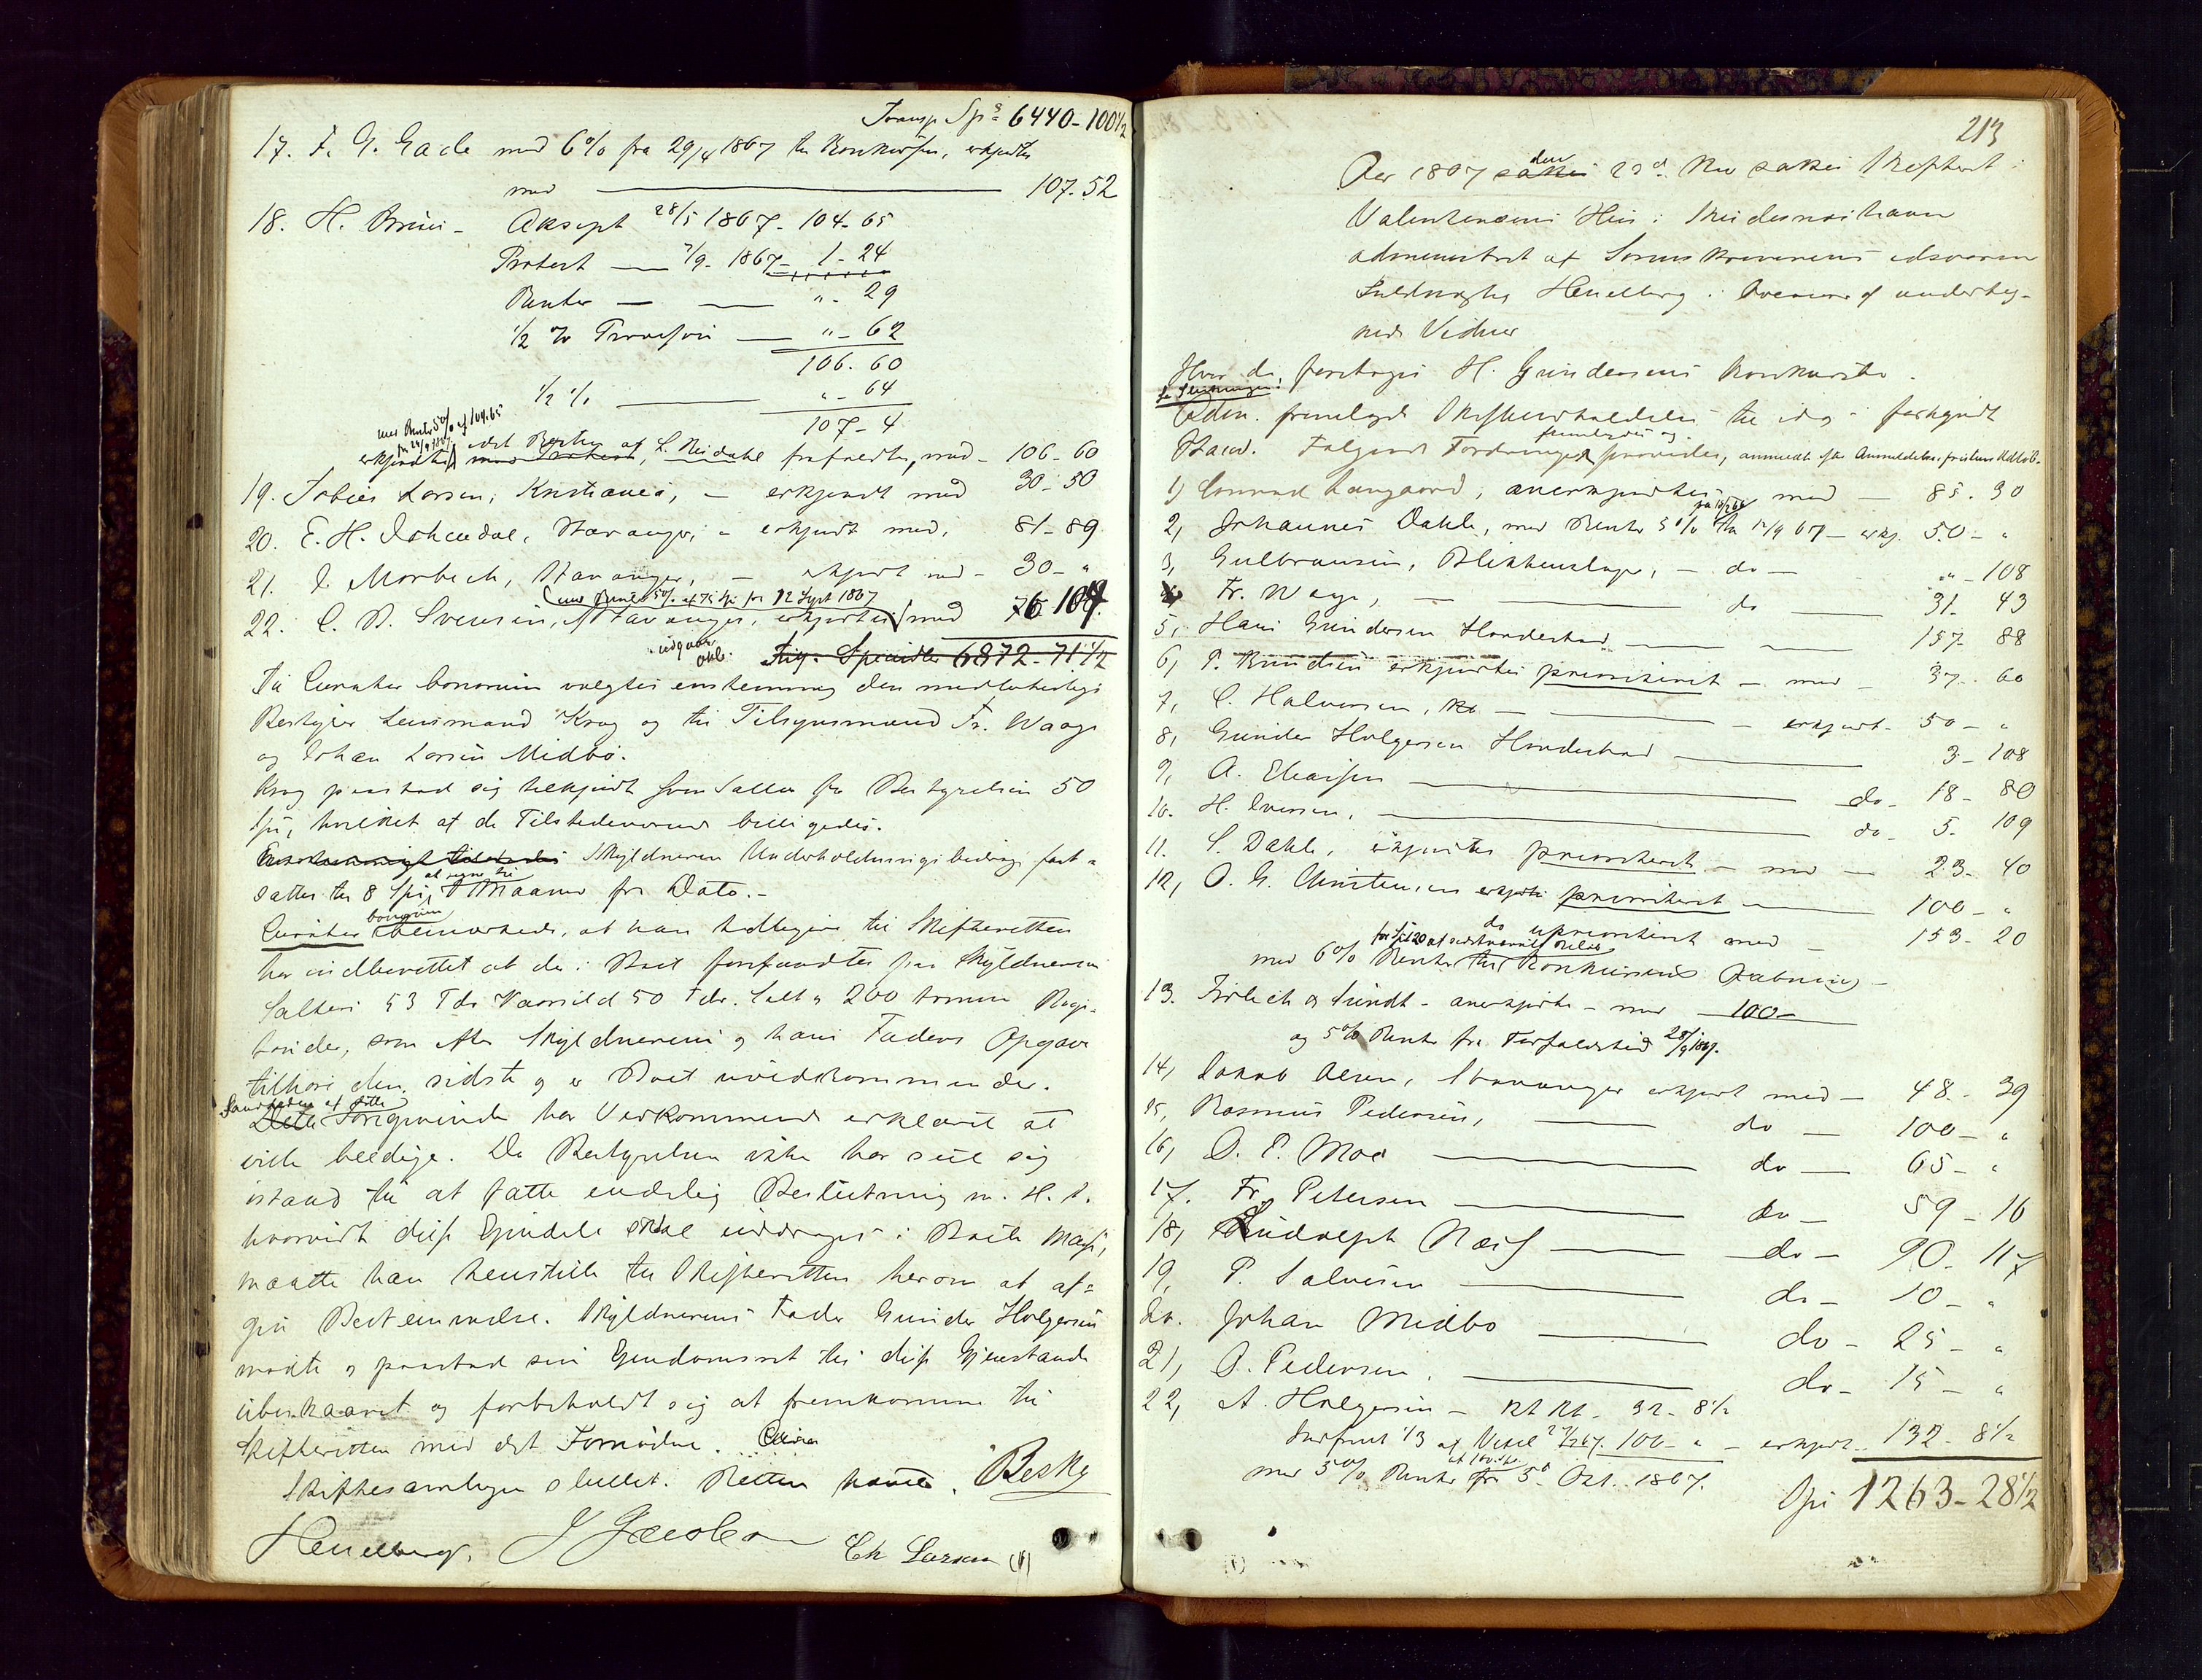 Transp. Sp. 6440-100½
17. F. G. Gade med 6% fra 29/4 1867 til Konkursen, erkjendtes
med 107.52
18. H. Bruun - Aksept 28/5 1867 - 104-65
Protest 7/9 - 1867 - 1-24
Renter " - 29
½ % Provision " - 62
106.60
½ % " - 64
107-4
med Renter 5% af 104.65
fra 28/9 1867
erkjendtes, med 106-60
19. Tobias Larsen, Kristiania, - erkjendt med 30-50
20. E. H. Stavanger, - erkjendt med, 81-89
21. Morbech, Stavanger, - erkjendt med - 30-"
med Renter 5% af 75 Spd fra 12 Sept 1867
22. C. B. Svensen, Stavanger, erkjendtes med 76 107
Spesidlr 6872-71½
Til Curator bonorum valgtes enstemmig den midlertidige
Bestyrer Lensmand Krog og til Tilsynsmænd Fr. Waage
og Johan Larsen Midbø.
Krog paastod sig tilkjendt som Salær for Bestyrelsen 50
Spd, hvilket af de Tilstedeværende billigedes.
Skyldneren Underholdningsbidrag fast-
sattes til 8 Spd, Maaned fra Dato.-
bonorum
Curator bemærkede, at han tidligere til Skifteretten
har indberettet at der i Boet forefandtes paa Skyldnerens
Salteri 53 Tdr Vaarsild 50 Tdr. Salt & 200 tomme
Tønder, som efter Skyldnerens og hans Faders Opgave
tilhøre den sidste og er Boet uvedkommende.
Sandheden af dette
Foregivende har Vedkommende erklæret at
ville beedige. Da Bestyrelsen ikke har seet sig
istand til at fatte endelig Beslutning m. H. t.
hvorvidt disse Eiendele skal inddrages i Boets Masse,
maatte han henstille til Skifteretten herom at af-
give Bestemmelse. Skyldnerens Fader Gunder Holgersen
mødte og paastod sin Eiendomsret til disse Gjenstande
ubeskaaret og forbeholdt sig at fremkomme til
Skifteretten med det Fornødne.
Skiftesamlingen sluttet. Retten hævet. Besky
Henelberg. J Jacobsen Ch Larsen (1)
213
den
Aar 1867 23d Nov Skifteret i
Valentinsens Hus i Skudesneshavn
administreret af Sorenskriverens edsvorne
Fuldmægtig Henelberg i Overvær af underteg-
nede Vidner
Hvor da foretoges H. Gundersens Konkursbo.
Adm. fremlagde Skiftets til idag forkyndt
fremlagdes og
Følgende Fordringer prøvedes, anmeldt før Anmeldelsesfristens Udløb.
1, Conrad Langaard, anerkjendtes med 85.30
2, Johannes Dahle, med Renter 5% fra 12/9 67 - erkj. 50-"
3, Gulbransen, Blikkenslager, - do - " -108
4, Fr. Wage, do 31. 43
5, Hans Gundersen 157. 88
6, P. erkjendtes prioriteret - med - 37. 60
7, C. Halvorsen, erkjendt - 50-"
8, Gunder Holgersen 3-108
9, A. Eliassen do - 18- 80
10. H. Iversen, do - 5. 109
11. S. Dahle, erkjendtes prioriteret - med - 23- 40
12, O. G. Christensen erkjendt prioriteret 100-"
do uprioriteret med - 153-20
med 6% Renter til Konkursens Aabning -
13. og Sundt - anerkjendtes - med 100-
og 5% Renter fra Forfaldstid 28/9 1867.
14, Jakob Olsen, Stavanger erkjendt med - 48-39
15, Rasmus Pedersen, do - 100-"
16, O. P. Moe do - 65-"
17. Fr. Petersen do - 59-16
18, Rudolph Næss do - 90-117
19, P. Salvesen do - 10-"
20. Johan Midbø do - 25-"
21, O. Pedersen, do - 15-"
22, A. Holgersen - 32- 8½
1/3 af Vexel 67. 100-" - erkjendt 132-8½
med 5% Renter fra 5d Oct. 1867.
Spd 1263-28½